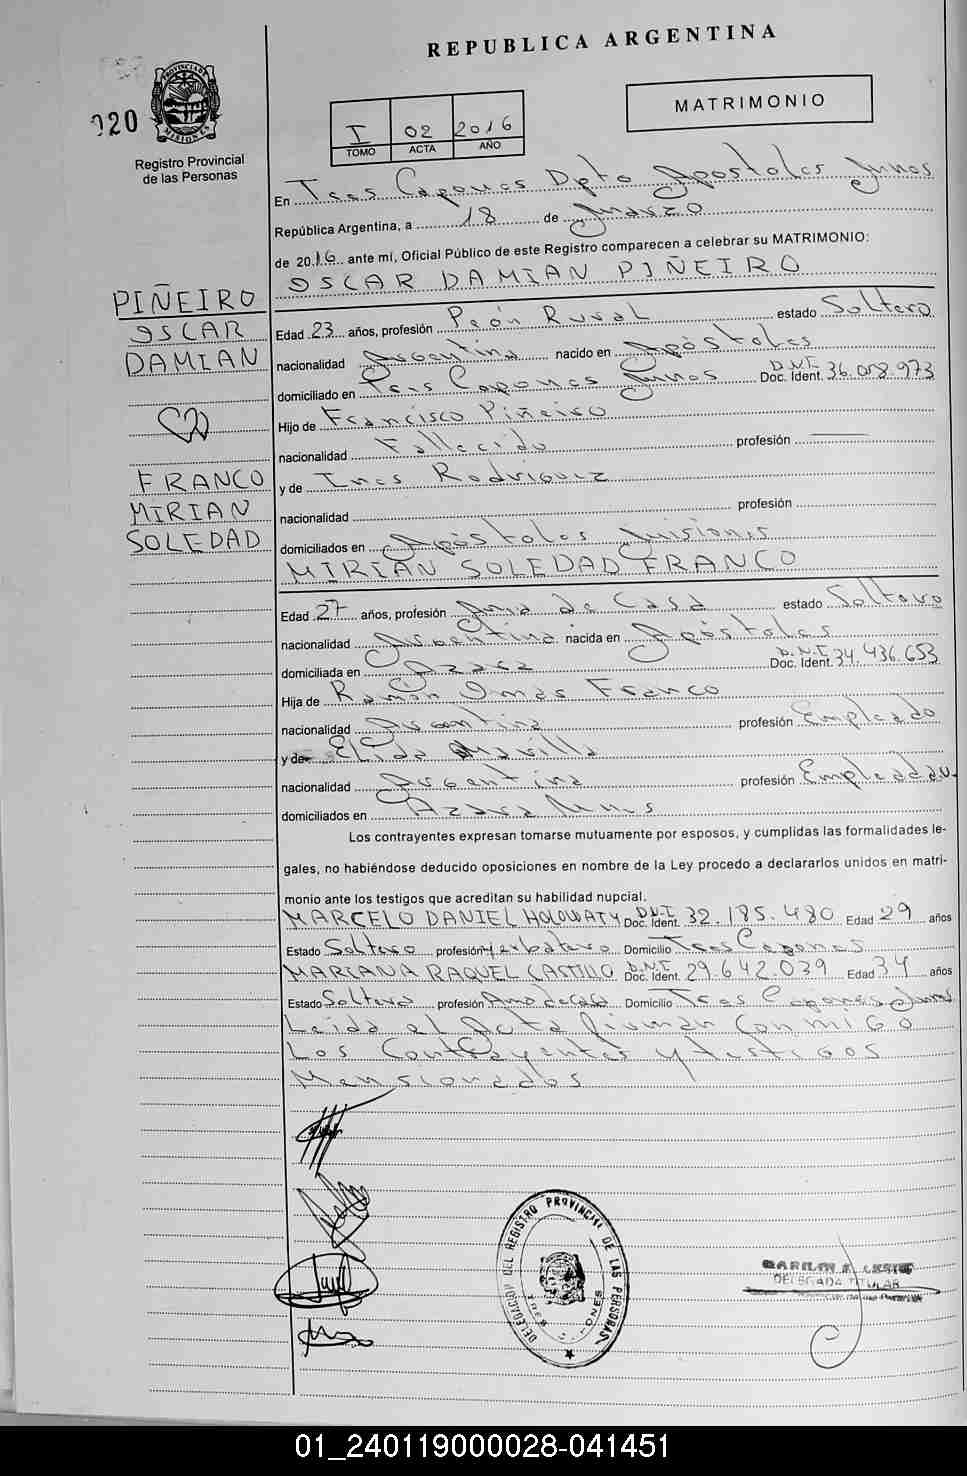 REPUBLICA ARGENTINA
MATRIMONIO
020
PROVINCIA DE MISIONES
Registro Provincial
de las Personas
I 02 2016
TOMO ACTA AÑO
En Tres Capones Dpto Apostoles Mnes
República Argentina, a 18 de Marzo
de 2016 ante mí, Oficial Público de este Registro comparecen a celebrar su MATRIMONIO:
OSCAR DAMIAN PIÑEIRO
PIÑEIRO
OSCAR
DAMIAN
FRANCO
MIRIAN
SOLEDAD
Edad 23 años, profesión Peón Rural estado Soltero
nacionalidad Argentina nacido en Apóstoles
domiciliado en Tres Capones Mnes D.N.I. Doc. Ident. 36.058.973
Hijo de Francisco Piñeiro
nacionalidad Fallecido profesión
y de Ines Rodriguez
nacionalidad profesión
domiciliados en Apóstoles Misiones
MIRIAN SOLEDAD FRANCO
Edad 27 años, profesión Ama de Casa estado Soltera
nacionalidad Argentina nacida en Apóstoles
domiciliada en Azara D.N.I Doc. Ident. 34.436.653
Hija de Ramón Omar Franco
nacionalidad Argentina profesión Empleado
y de Elida
nacionalidad Argentina profesión Empleada
domiciliados en Azara Mnes
Los contrayentes expresan tomarse mutuamente por esposos, y cumplidas las formalidades le-
gales, no habiéndose deducido oposiciones en nombre de la Ley procedo a declararlos unidos en matri-
monio ante los testigos que acreditan su habilidad nupcial.
MARCELO DANIEL HOLOWATY D.N.I. Doc. Ident. 32.185.480 Edad 29 años
Estado Soltero profesión Yerbatero Domicilio Tres Capones
MARIANA RAQUEL CASTILLO D.N.I. Doc. Ident. 29.642.039 Edad 34 años
Estado Soltera profesión Ama de casa Domicilio Tres Capones Mnes
Leida el Acta firman conmigo
Los Contrayentes y testigos
Mensionados
DELEGACION DEL REGISTRO PROVINCIAL DE LAS PERSONAS
TRES CAPONES
DELEGADA TITULAR
01_240119000028-041451